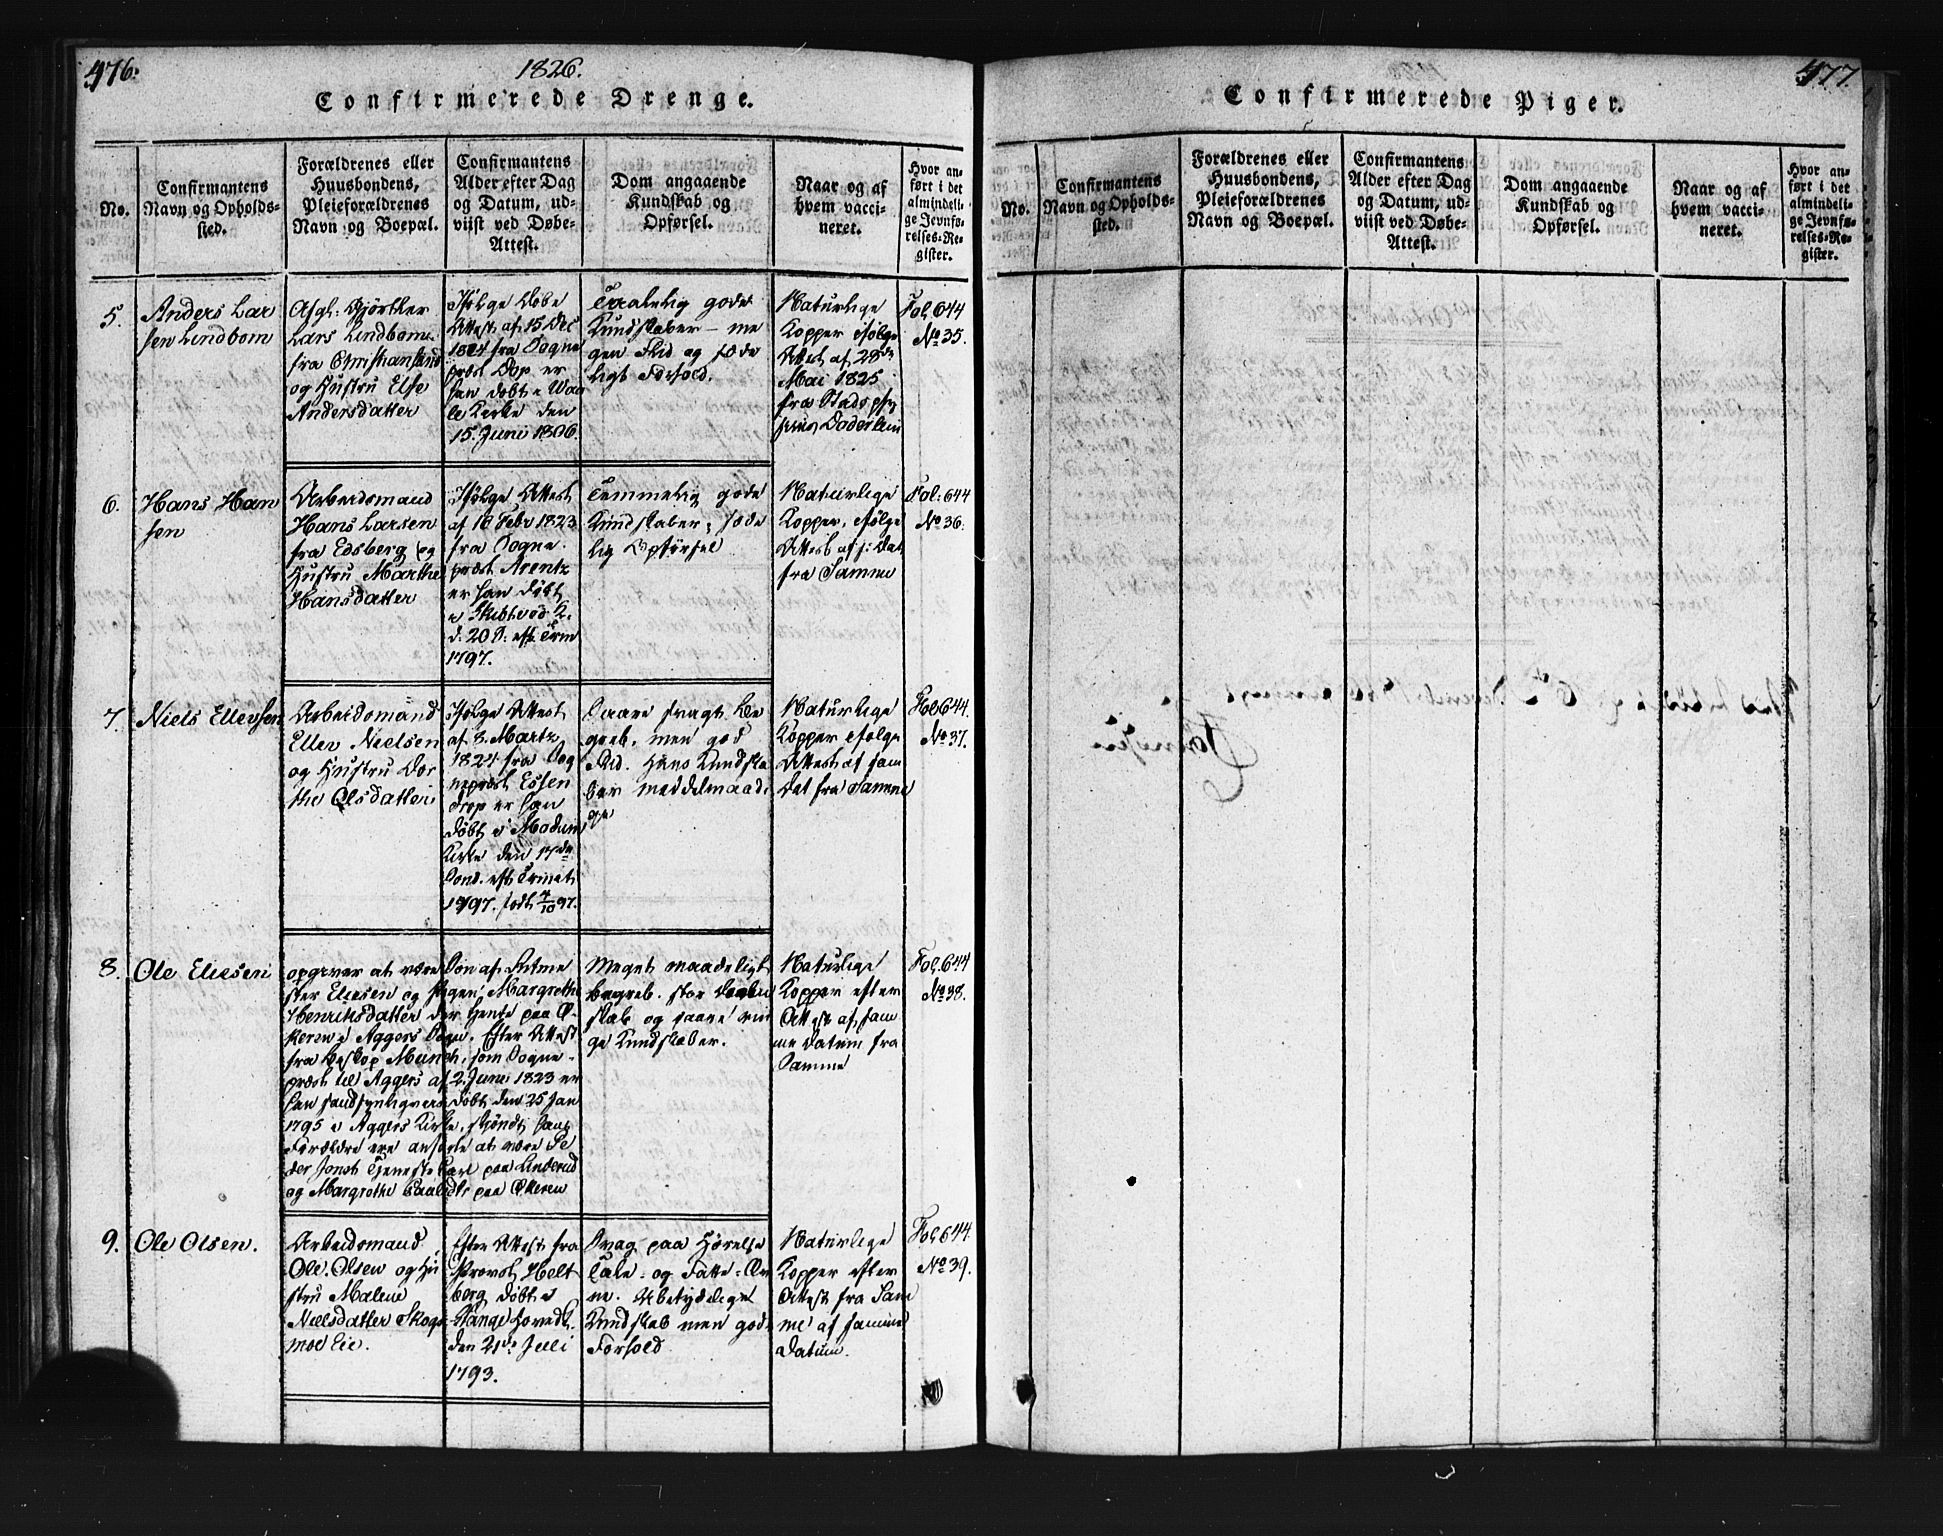 476.
1826.
Confirmerede Drenge.
No.
Confirmantens
Navn og Opholds-
sted.
Forældrenes eller
Huusbondens,
Pleieforældrenes
Navn og Boepæl.
Confirmantens
Alder efter Dag
og Datum, ud-
viist ved Døbe-
Attest.
Dom angaaende
Kundskab og
Opførsel.
Naar og af
hvem vacci-
neret.
Hvor an-
ført i det
almindeli-
ge Jevnfø-
relses-Re-
gister.
5.
Anders Lar
sen Lindbom
Afgl. Bjørtler
Lars Lindbom
fra Christiansund
og Hustru Else
Andersdatter
Ifølge Døbe
Attest af 15 Dec
1824 fra Sogne
præst Dop er
han døbt i Waa
le Kirke den
15. Juni 1806.
Taalelig gode
Kundskaber - me
gen Flid og sæde
ligt Forhold.
Naturlige
Kopper ifølge
Attest af 28de
Mai 1825
fra Stadsphy
sicus Døderlein
Fol. 644
No 35.
6.
Hans Han
sen
Arbeidsmand
Hans Larsen
fra Edsberg og
Hustru Marthe
Hansdatter
Ifølge Attest
af 16 Febr 1823
fra Sogne-
præst Arentz
er han døbt
i Skibtved K.
d: 20 S. eft. Trin
1797.
Temmelig gode
Kundskaber, sæde
lig Opførsel
Naturlige
Kopper, ifølge
Attest af s: Dat
fra Samme
Fol: 644
No 36.
7.
Niels Ellevsen
Arbeidsmand
Ellev Nielsen
og Hustru Dor
the Olsdatter
Ifølge Attest
af 8. Martz
1824 fra Sog
nepræst Essen
drop er han
døbt i Modum
Kirke den 17de
Sønd. eft Trinit.
1797. født 4/10 97.
Saare svagt Be
greb, men god
Flid. Hans Kundska
ber middelmaadi
ge
Naturlige
Kopper ifølge
Attest af sam
Dat fra Samme
Fol 644.
No 37.
8.
Ole Eliesen
opgiver at være Søn af Sætme
ster Eliesen og Pigen Margrethe
Henriksdatter der hente paa Ø-
keren i Aggers Sogn. Efter Attest
fra Biskop Munch, som Sogne-
præst til Aggers af 2. Juni 1823 er
han sandsynligvis døbt den 25 Jan
1795 i Aggers Kirke, skjøndt hans
Forældre ere anførte at være Pe
der Jonsen Tjenestekarl paa Linderud
og Margrethe Paalsdt. paa Økeren
Meget maadeligt
begreb. stor
skab og saare rin
ge Kundskaber.
Naturlige
Kopper efter
Attest af sam
me Datum fra
Samme
Fol. 644
No 38.
9.
Ole Olsen.
Arbeidsmand
Ole Olsen og Hu
stru Malene
Nielsdatter Skogs
moe Eie.
Efter Attest fra
Provst Helt
berg døbt i
Stange Hovedk.
den 21de Juli
1793.
Svag paa Hørelse
Tale- og Fatte-Ev
ne. Ubetydelige
Kundskab men godt
Forhold
Naturlige
Kopper efter
Attest fra Sam
me af samme
Datum.
Fol 644.
No 39.
477.
Confirmerede Piger.
No.
Confirmantens
Navn og Opholds-
sted.
Forældrenes eller
Huusbondens,
Pleieforældrenes
Navn og Boepæl.
Confirmantens
Alder efter Dag
og Datum, ud-
viist ved Døbe-
Attest.
Dom angaaende
Kundskab og
Opførsel.
Naar og af
hvem vacci-
neret.
Hvor an-
ført i det
almindeli-
ge Jevnfø-
relses-Re-
gister.